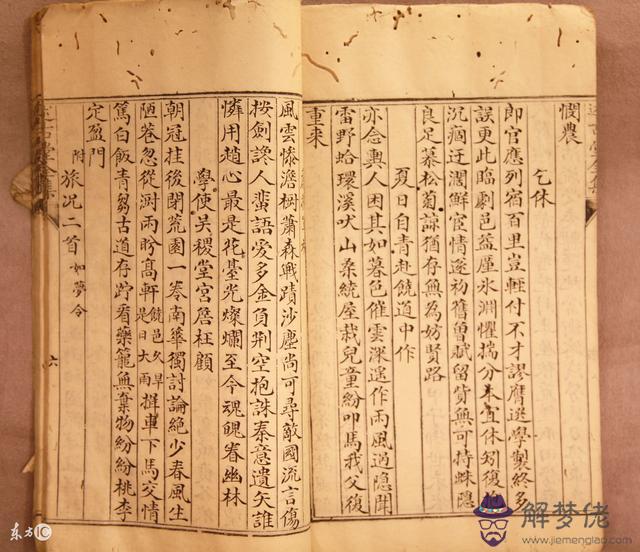 憫農
乞休
郎官應列宿百里豈輕付不才謬膺選學製終多
誤更此臨劇邑益厪氷淵懼揣分本宜休矧復抱
沉痼迂濶鮮宦情遂初舊曾賦留貲無可持蛛隱
良足慕松菊諒猶存無為妨賢路
夏日自青赴饒道中作
亦念輿人困其如暮色催雲深遙作雨風過隱聞
雷野蛤環溪吠山桑統屋栽兒童紛叩馬我父復
重来
風雲慘澹樹蕭森戰蹟沙塵尚可尋敵國流言傷
按劍讒人蜚語愛多金負荆空抱誅秦意遺矢誰
憐用趙心最是花臺光燦爛至今魂魄眷幽林
學使吴稷堂宫詹枉顧
朝冠挂後閉荒園一卷南華獨討論絶少春風生
陋巷忽從澍雨盼髙軒饒邑久旱是日大雨攆車下馬交情
篤白飯青芻古道存跨看藥籠無棄物紛紛桃李
定盈門
附旅况二首如夢令
六
东方IC
解梦佬
www.jiemenglao.com